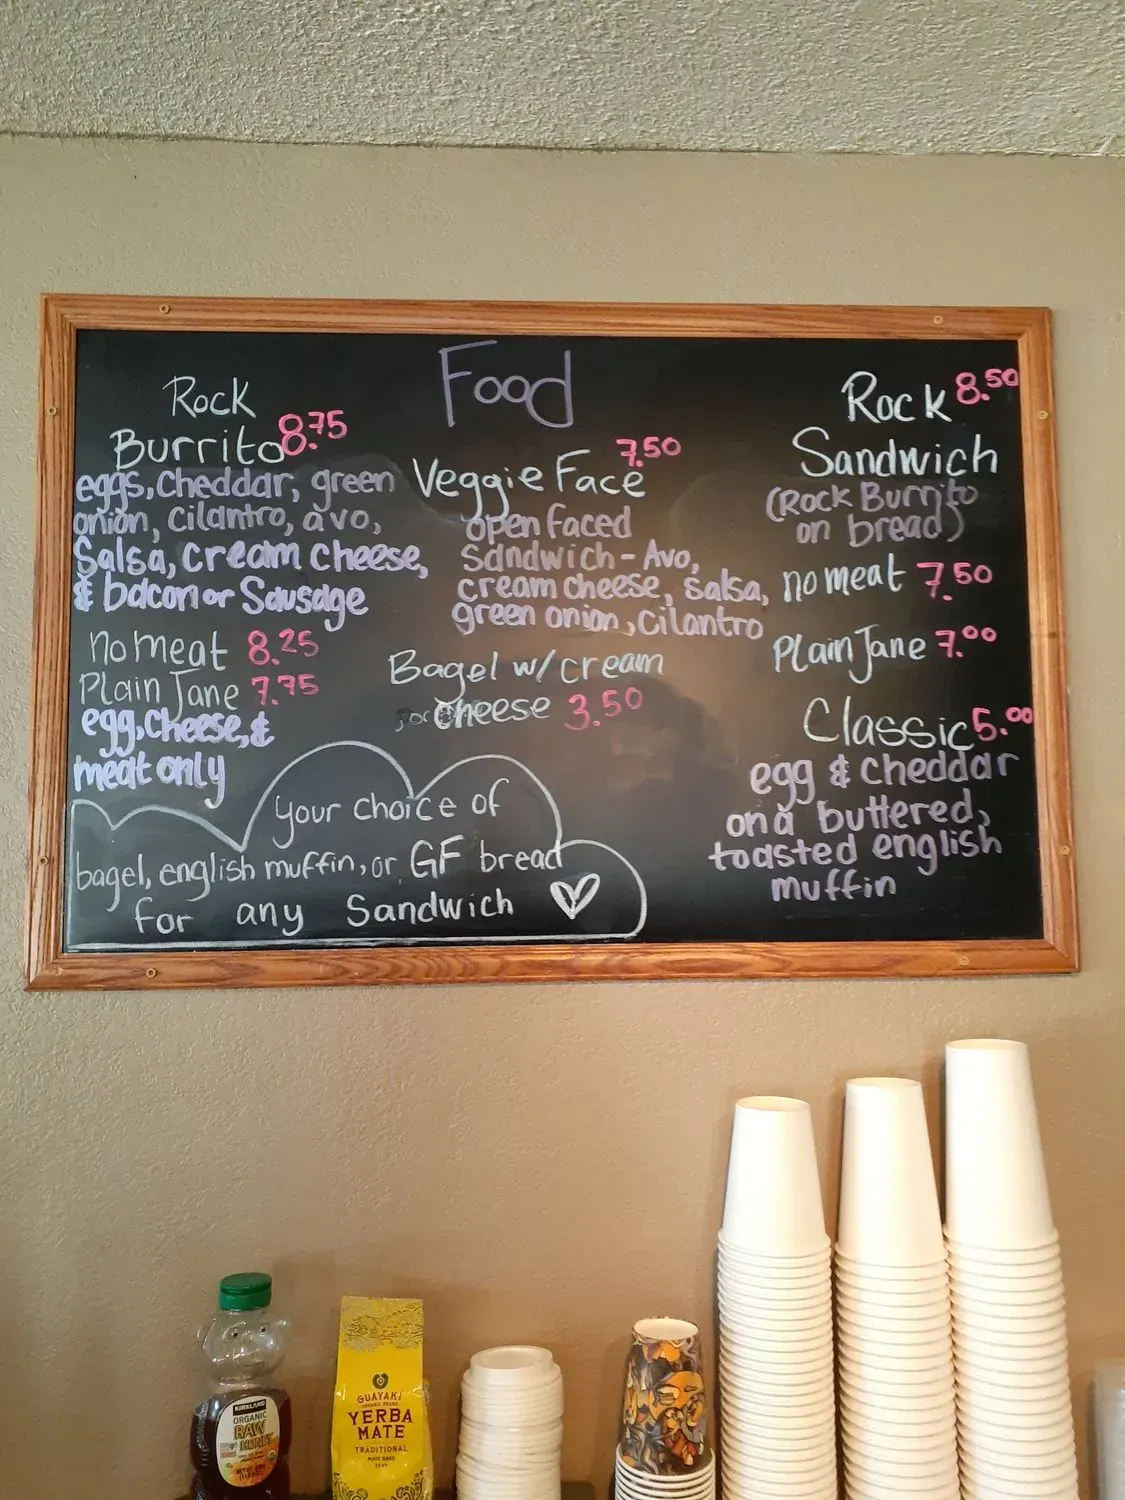 Food
Rock
Burrito 8.75
eggs, cheddar, green
onion, cilantro, avo,
Salsa, cream cheese,
& bacon or Sausage
no meat 8.25
Plain Jane 7.75
egg, cheese, &
meat only
7.50
Veggie Face
open faced
sandwich - Avo,
cream cheese, salsa,
green onion, cilantro
Bagel w/ cream
cheese 3.50
Rock 8.50
Sandwich
(Rock Burrito
on bread)
no meat 7.50
Plain Jane 7.00
Classic 5.00
egg & cheddar
on a buttered,
toasted english
muffin
your choice of
bagel, english muffin, or GF bread
for any Sandwich
KIRKLAND
ORGANIC
RAW
HONEY
GUAYAKI
YERBA
MATE
TRADITIONAL